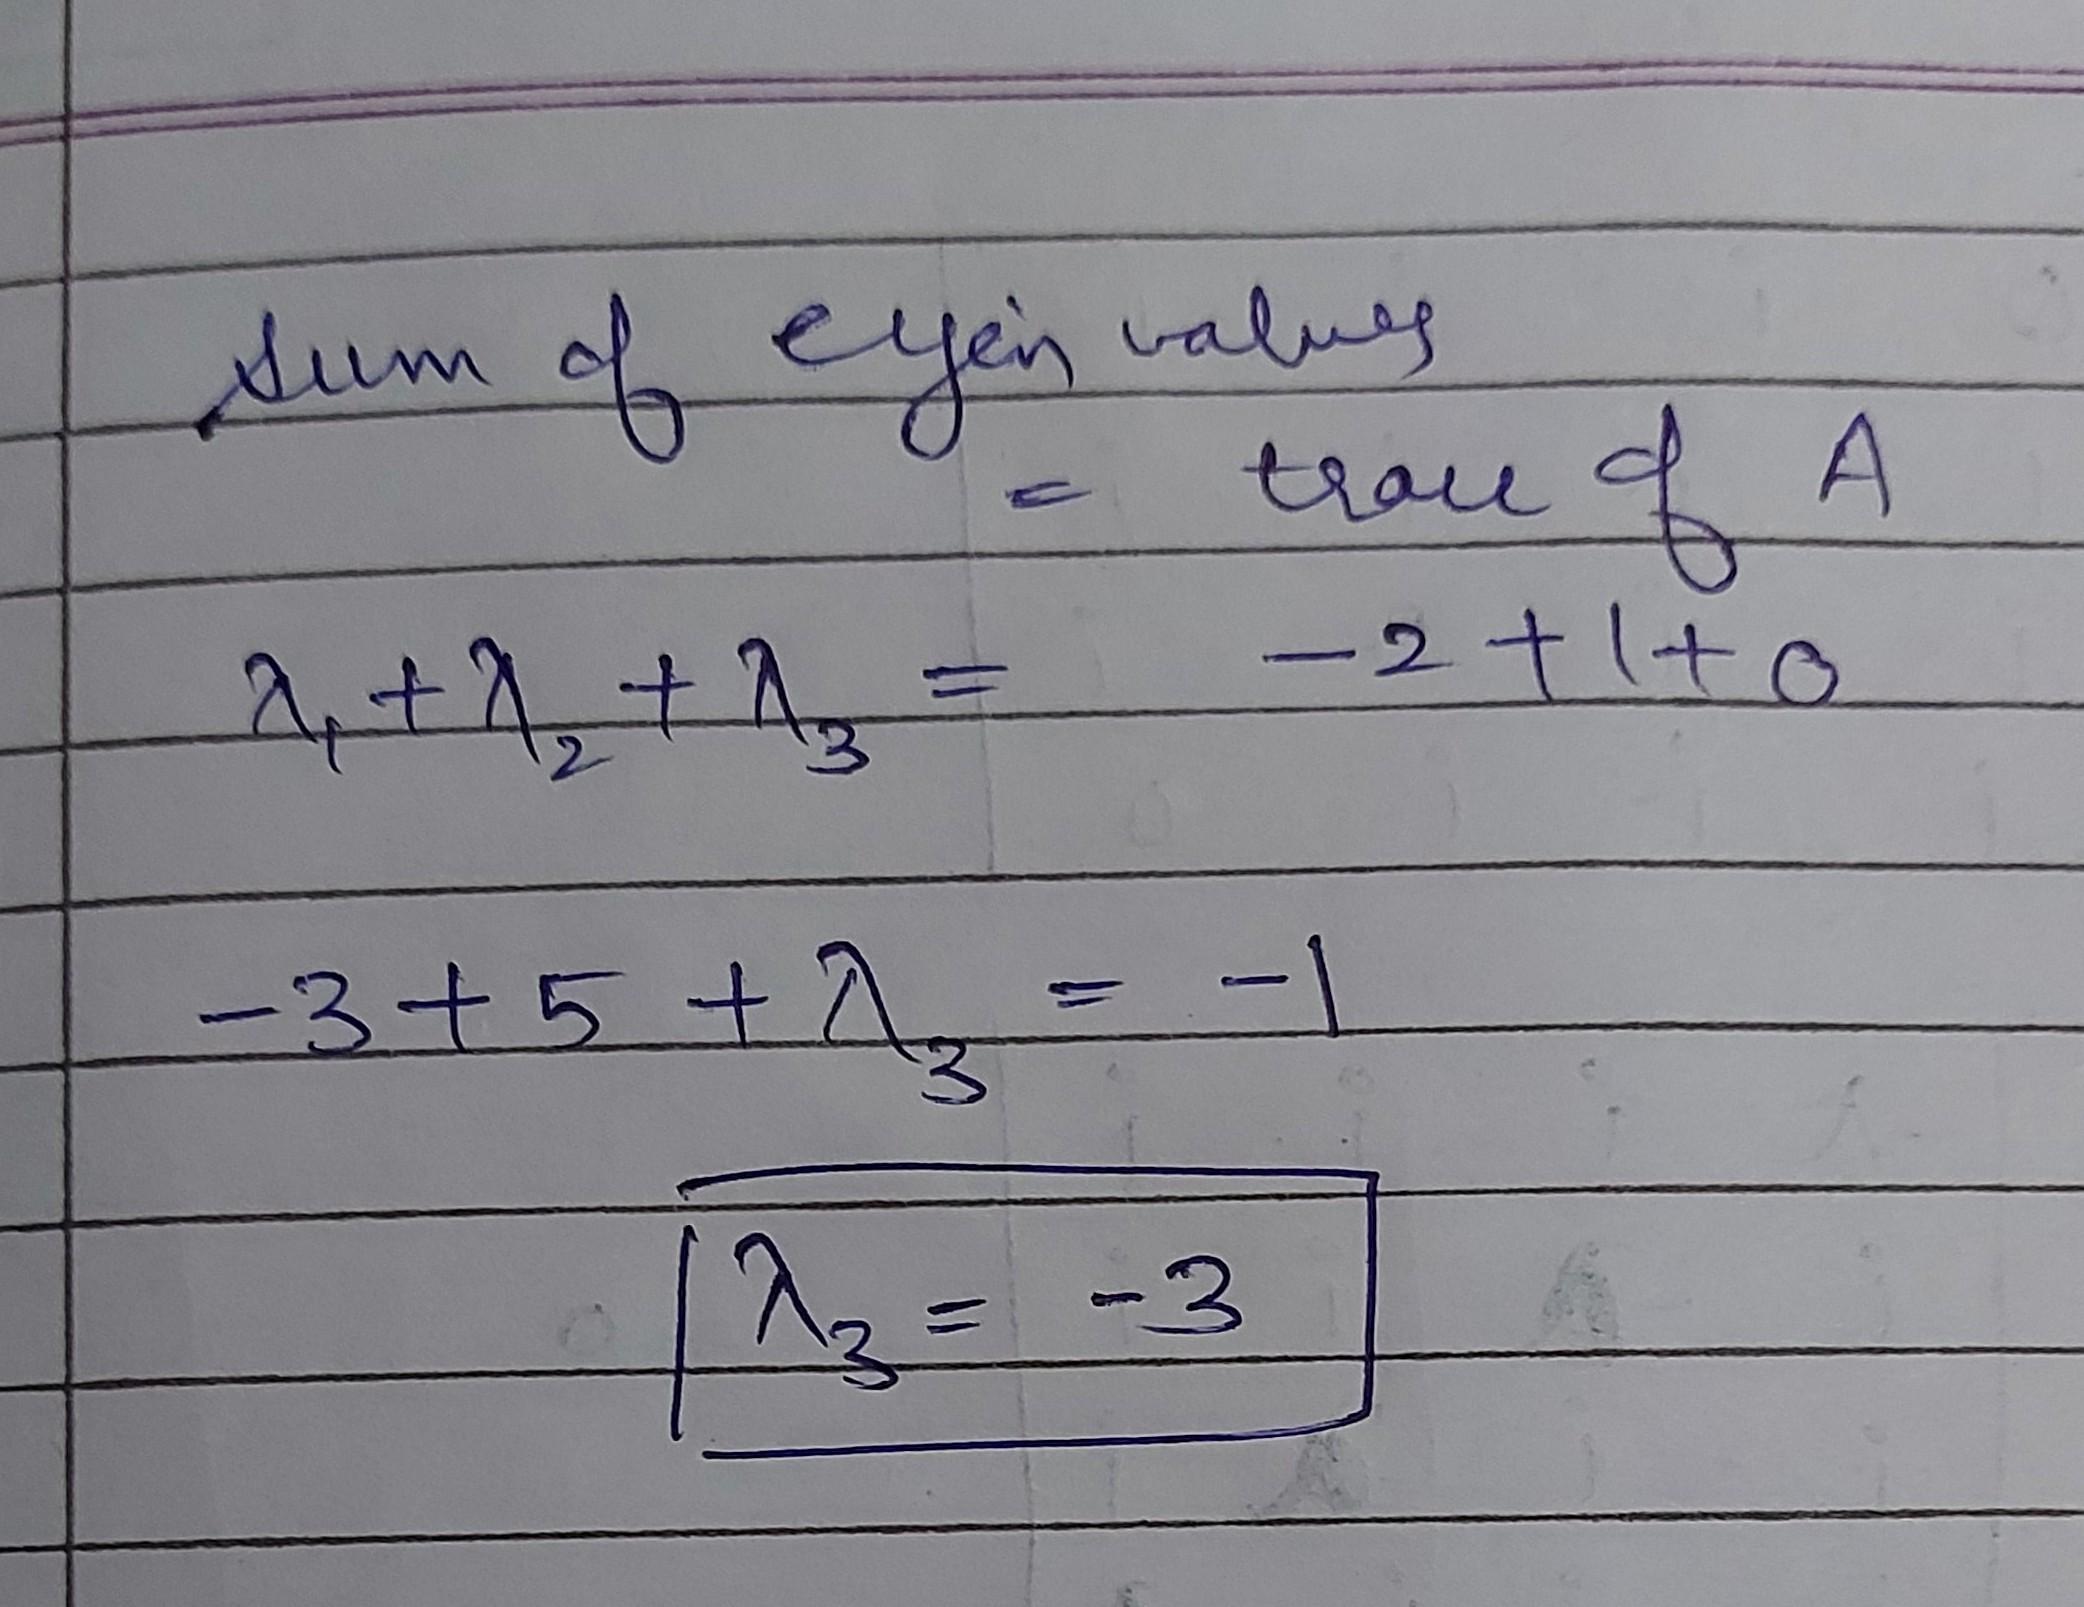 sum of eigen values
= trace of A
λ₁ + λ₂ + λ₃ = -2 + 1 + 0
-3 + 5 + λ₃ = -1
λ₃ = -3